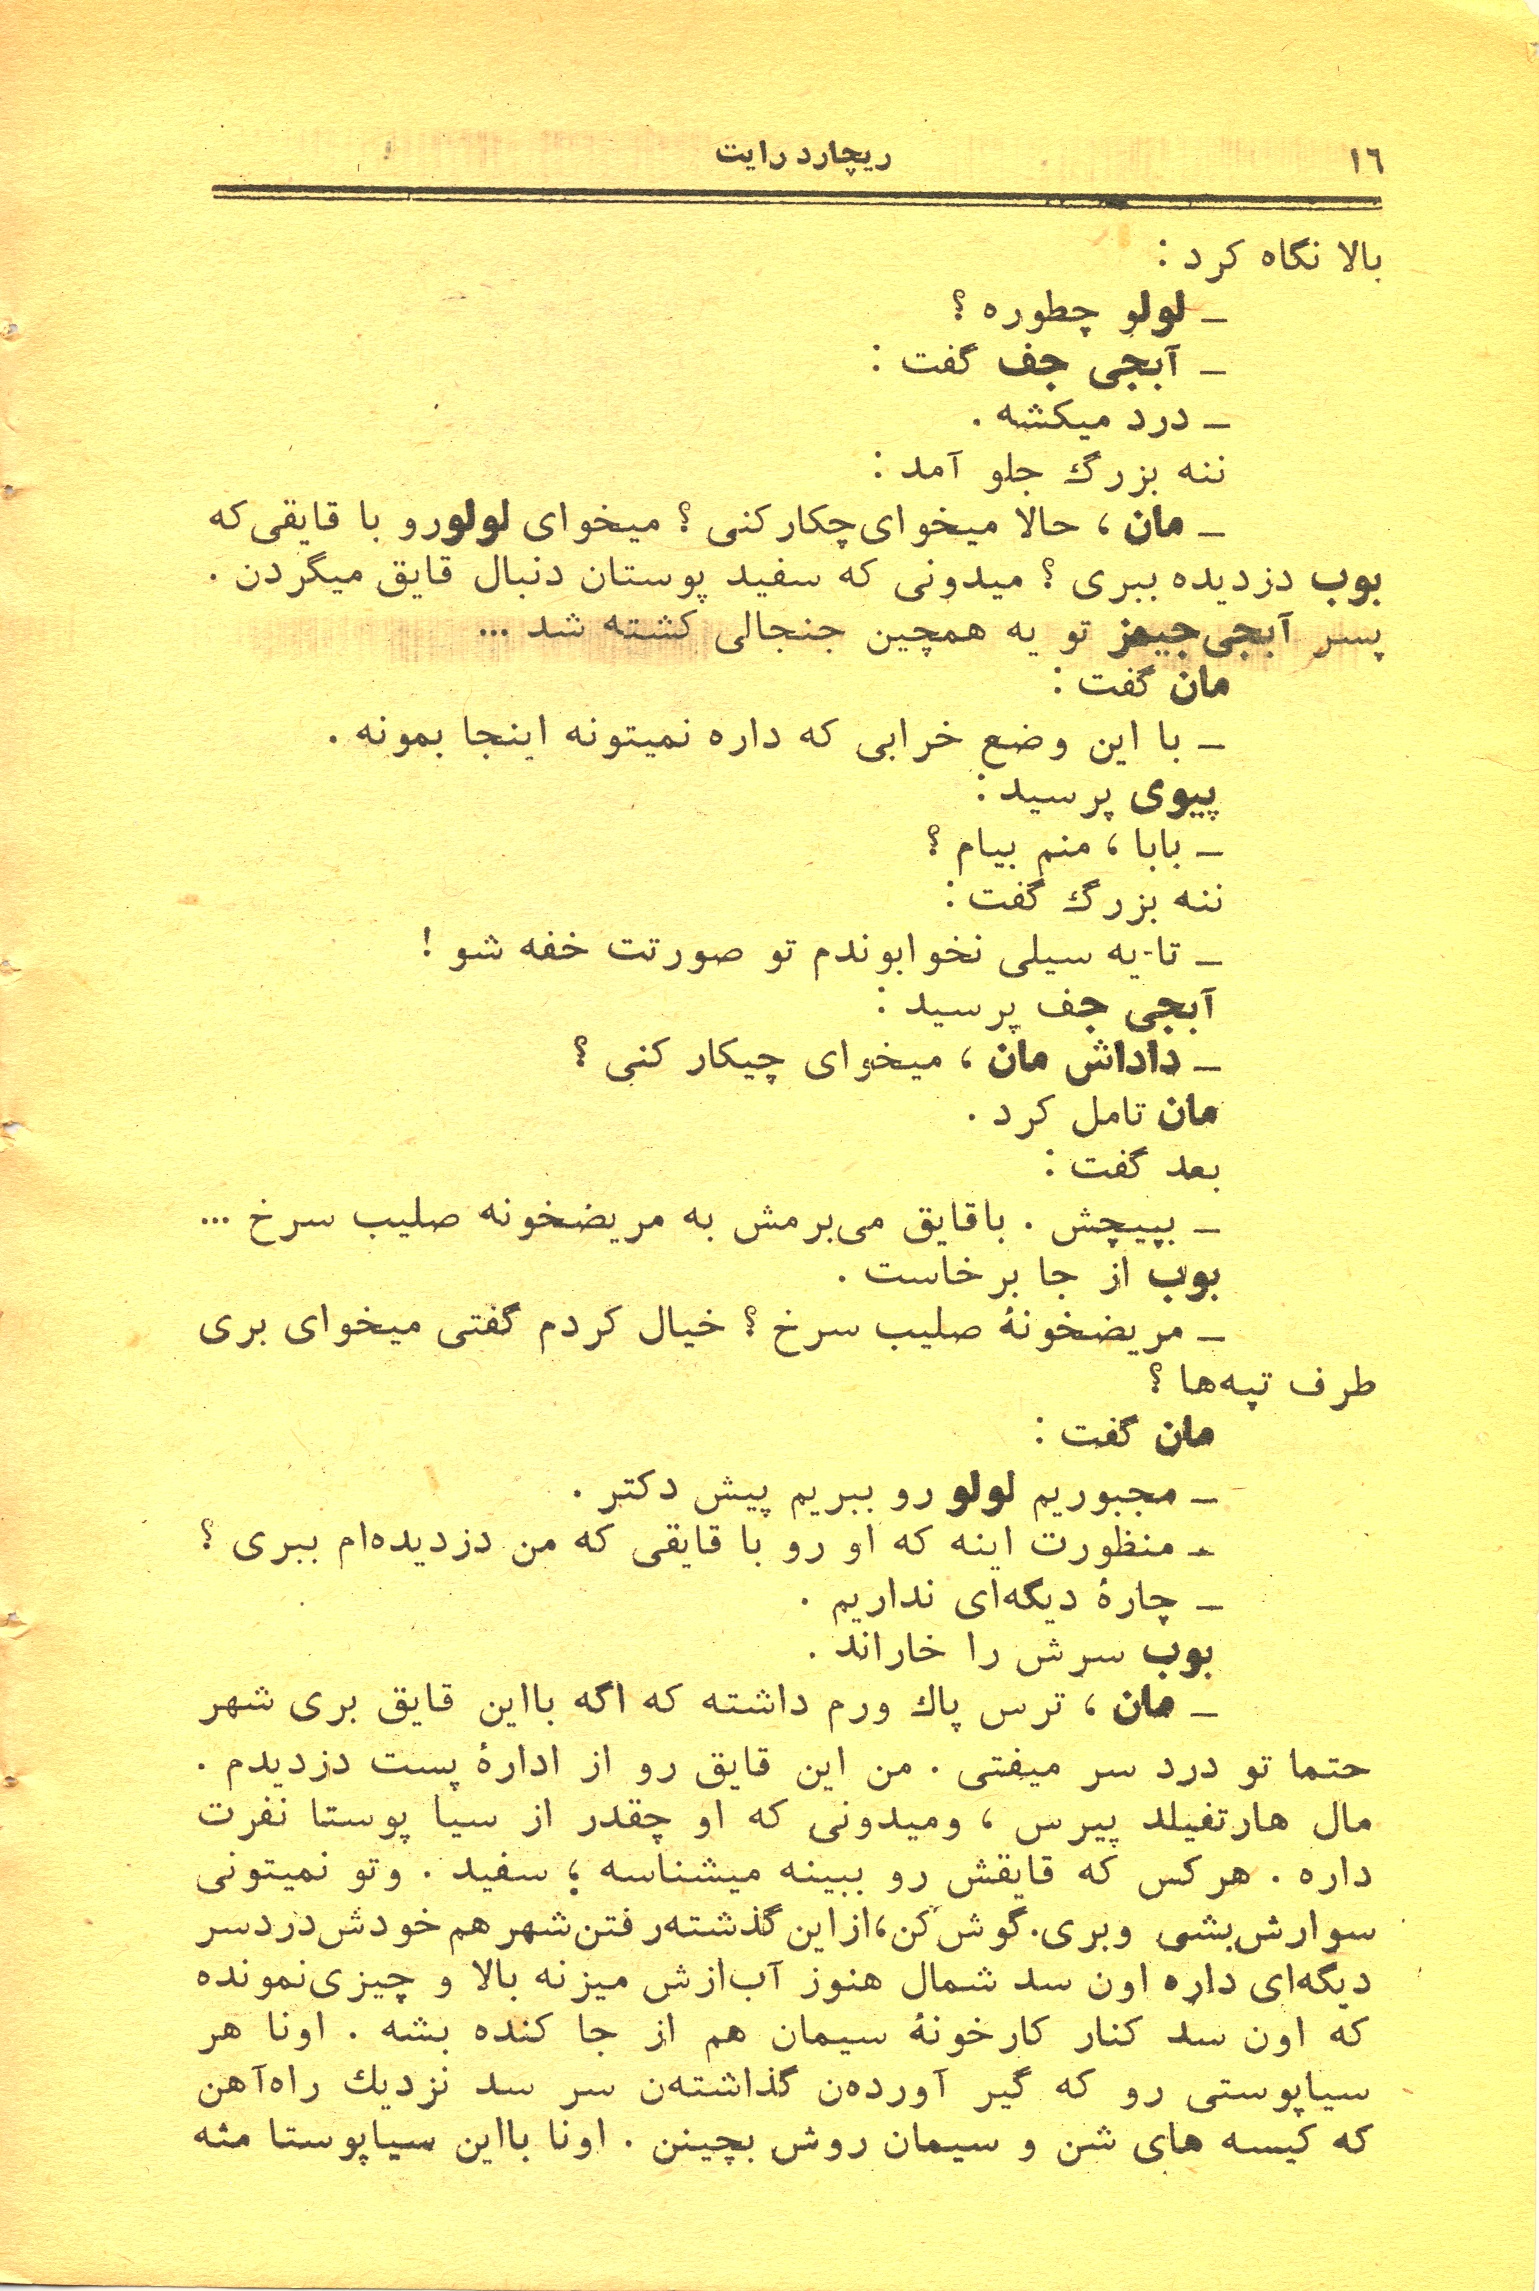 ١٦
ریچارد رایت
بالا نگاه کرد :
ـ لولو چطوره ؟
ـ آبجی جف گفت :
ـ درد میکشه .
ننه بزرگ جلو آمد :
ـ مان ، حالا میخوای چکار کنی ؟ میخوای لولورو با قایقی که
بوب دزدیده ببری ؟ میدونی که سفید پوستان دنبال قایق میگردن .
پسر آبجی جیمز تو یه همچین جنجالی کشته شد ...
مان گفت :
ـ با این وضع خرابی که داره نمیتونه اینجا بمونه .
پیوی پرسید :
ـ بابا ، منم بیام ؟
ننه بزرگ گفت :
ـ تا-یه سیلی نخوابوندم تو صورتت خفه شو !
آبجی جف پرسید :
ـ داداش مان ، میخوای چیکار کنی ؟
مان تامل کرد .
بعد گفت :
ـ بپیچش . باقایق می‌برمش به مریضخونه صلیب سرخ ...
بوب از جا برخاست .
ـ مریضخونهٔ صلیب سرخ ؟ خیال کردم گفتی میخوای بری
طرف تپه‌ها ؟
مان گفت :
ـ مجبوریم لولو رو ببریم پیش دکتر .
ـ منظورت اینه که او رو با قایقی که من دزدیده‌ام ببری ؟
ـ چارهٔ دیگه‌ای نداریم .
بوب سرش را خاراند .
ـ مان ، ترس پاك ورم داشته که اگه بااین قایق بری شهر
حتما تو درد سر میفتی . من این قایق رو از ادارهٔ پست دزدیدم .
مال هارتفیلد پیرس ، ومیدونی که او چقدر از سیا پوستا نفرت
داره . هرکس که قایقش رو ببینه میشناسه ؛ سفید . وتو نمیتونی
سوارش‌بشی وبری. گوش کن، از این گذشته‌رفتن‌شهر هم خودش‌دردسر
دیگه‌ای داره اون سد شمال هنوز آب‌ازش میزنه بالا و چیزی‌نمونده
که اون سد کنار کارخونهٔ سیمان هم از جا کنده بشه . اونا هر
سیاپوستی رو که گیر آورده‌ن گذاشته‌ن سر سد نزدیك راه‌آهن
که کیسه های شن و سیمان روش بچینن . اونا بااین سیاپوستا مثه